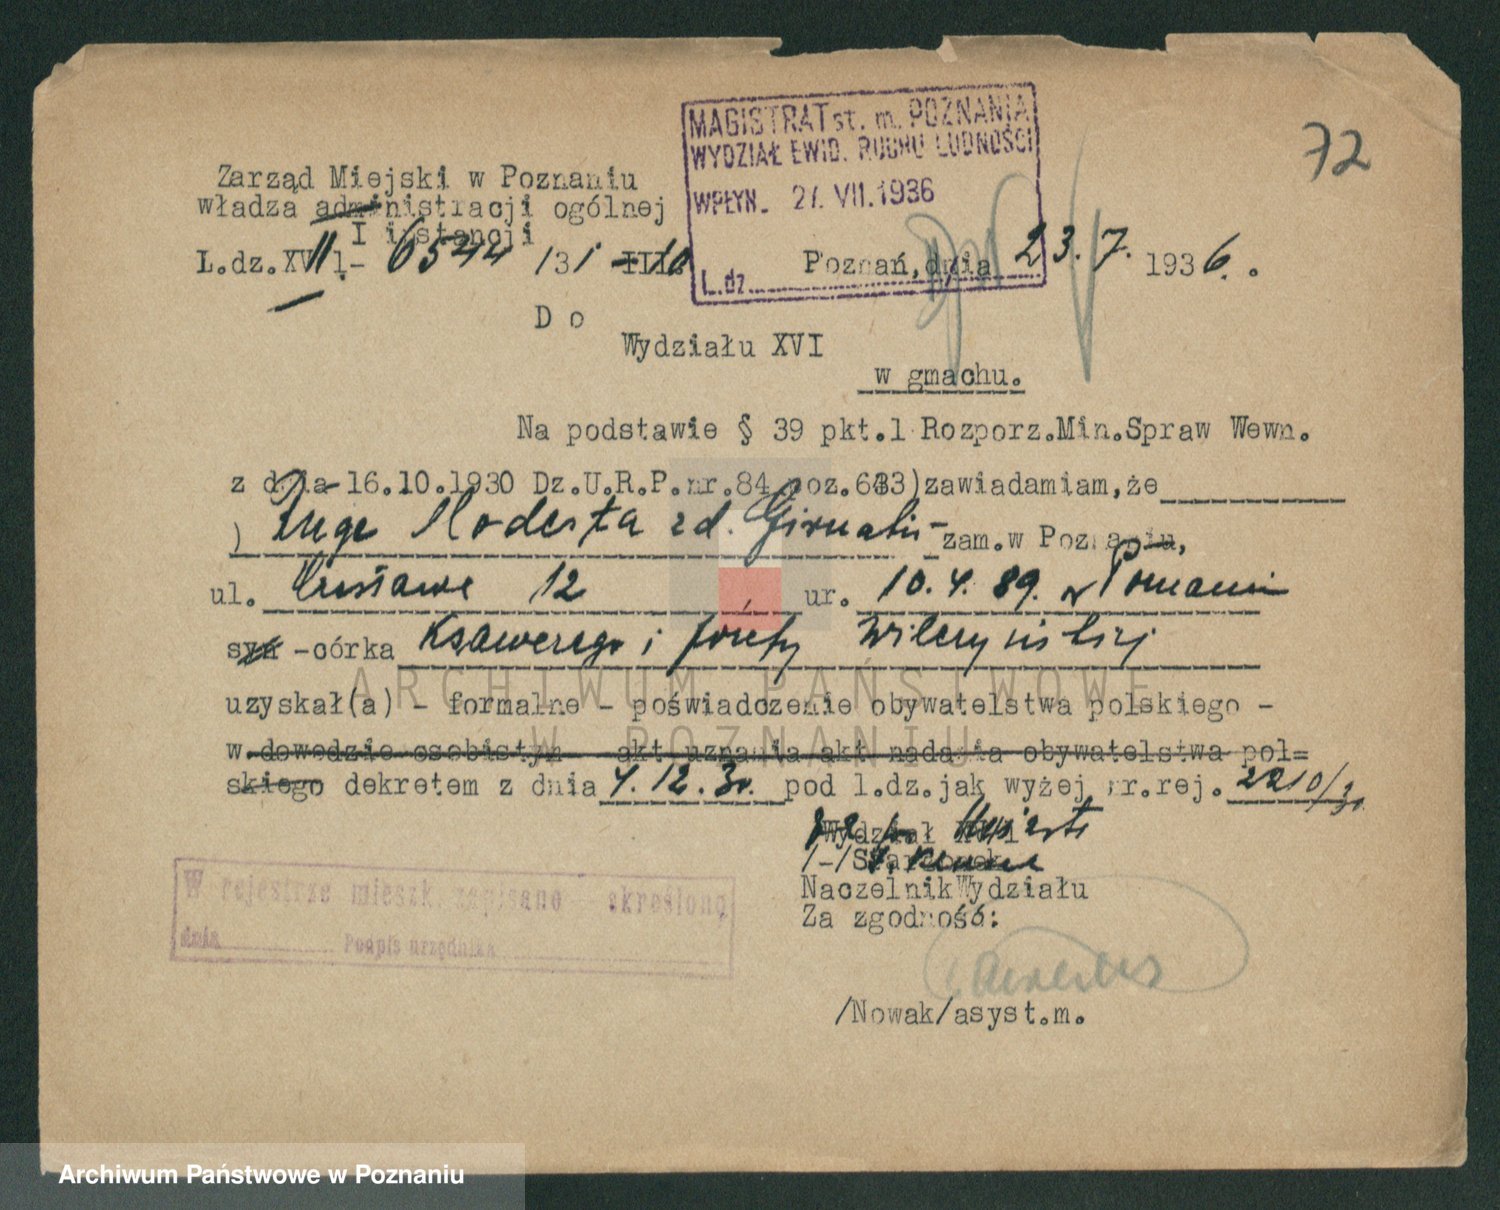 72
MAGISTRAT st. m. POZNANIA
WYDZIAŁ EWID. RUCHU LUDNOŚCI
WPŁYN. 27. VII. 1936
L.dz.
Zarząd Miejski w Poznaniu
władza administracji ogólnej
I instancji
L.dz.XVII- 6544 /31
Poznań, dnia 23.7. 1936.
Do
Wydziału XVI
w gmachu.
Na podstawie § 39 pkt.1 Rozporz.Min.Spraw Wewn.
z dnia 16.10.1930 Dz.U.R.P.nr.84 poz.633)zawiadamiam,że
Modesta zd. zam.w Poznaniu,
ul. 12 , ur. 10.4.89. w Poznaniu
syn -córka Ksawerego i Józefy
uzyskał(a) - formalne - poświadczenie obywatelstwa polskiego -
w dowodzie osobistym akt uznania akt nadania obywatelstwa pol=
skiego dekretem z dnia 4.12.30. pod l.dz.jak wyżej nr.rej. 2210/30
Wydział
Naczelnik Wydziału
Za zgodność:
/Nowak/asyst.m.
W rejestrze mieszk. zapisano - skreślono
dnia Podpis urzędnika
ARCHIWUM PAŃSTWOWE
W POZNANIU
Archiwum Państwowe w Poznaniu